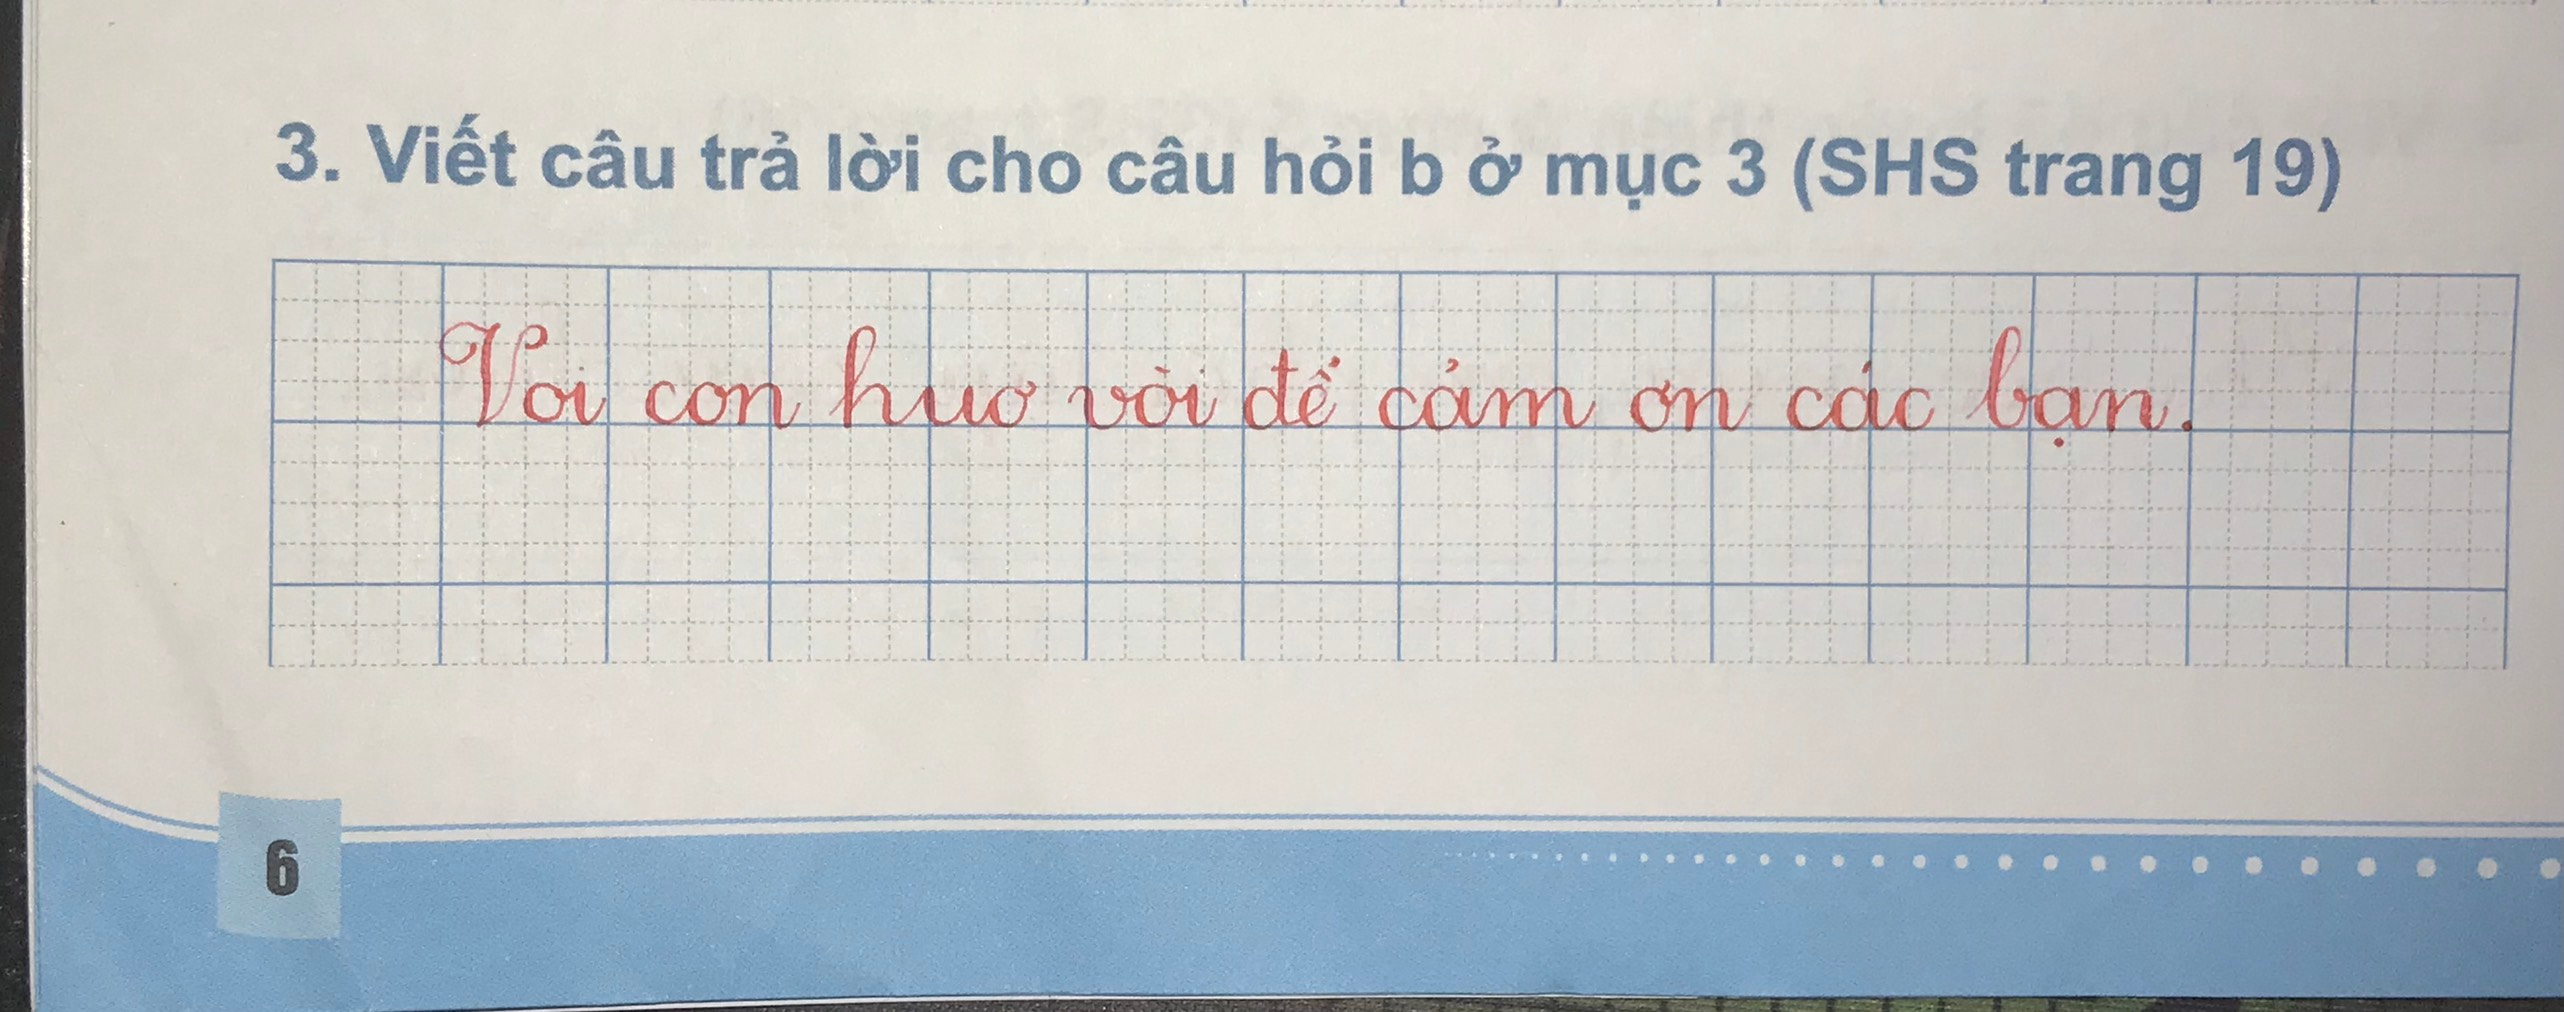 3. Viết câu trả lời cho câu hỏi b ở mục 3 (SHS trang 19)
Voi con huơ vòi để cảm ơn các bạn.
6